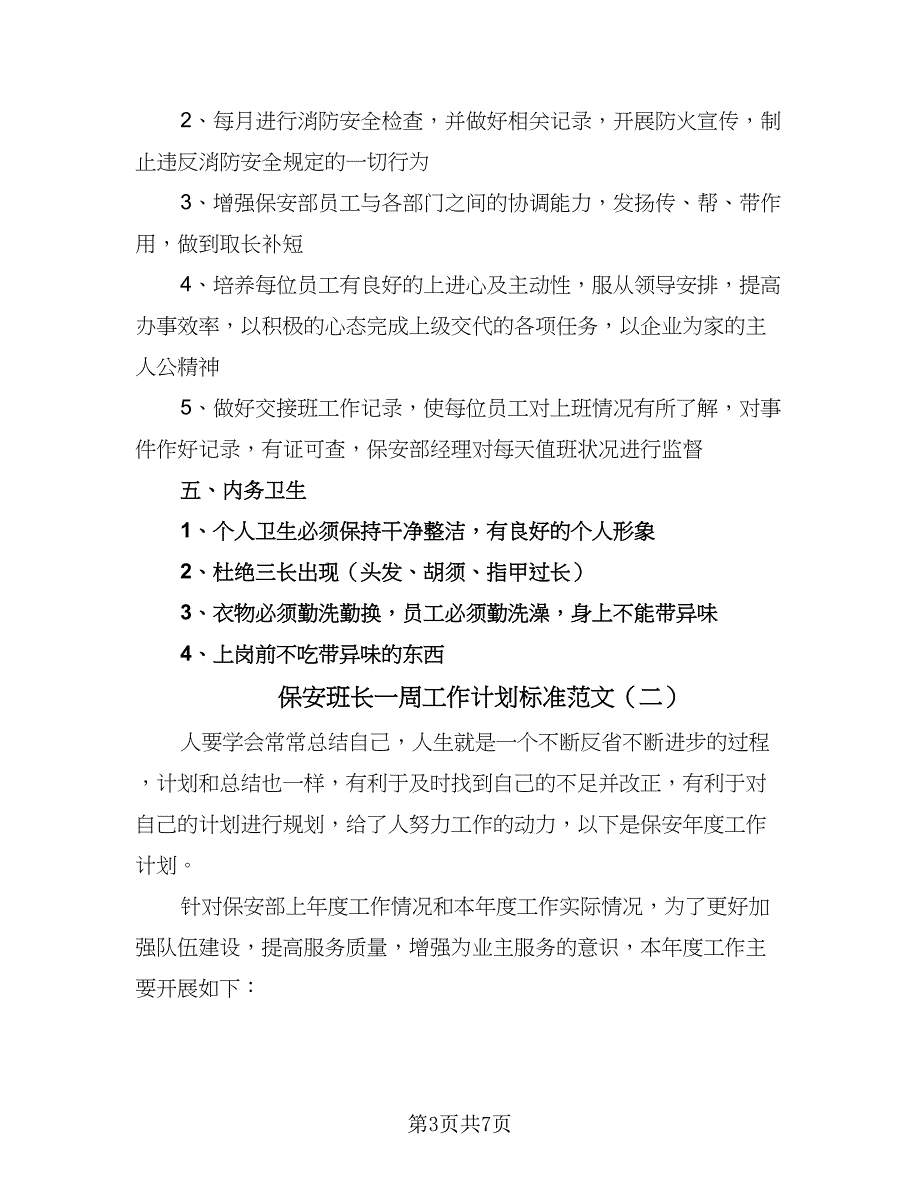 2、每月进行消防安全检查，并做好相关记录，开展防火宣传，制
止违反消防安全规定的一切行为
3、增强保安部员工与各部门之间的协调能力，发扬传、帮、带作
用，做到取长补短
4、培养每位员工有良好的上进心及主动性，服从领导安排，提高
办事效率，以积极的心态完成上级交代的各项任务，以企业为家的主
人公精神
5、做好交接班工作记录，使每位员工对上班情况有所了解，对事
件作好记录，有证可查，保安部经理对每天值班状况进行监督
五、内务卫生
1、个人卫生必须保持干净整洁，有良好的个人形象
2、杜绝三长出现（头发、胡须、指甲过长）
3、衣物必须勤洗勤换，员工必须勤洗澡，身上不能带异味
4、上岗前不吃带异味的东西
保安班长一周工作计划标准范文（二）
人要学会常常总结自己，人生就是一个不断反省不断进步的过程
，计划和总结也一样，有利于及时找到自己的不足并改正，有利于对
自己的计划进行规划，给了人努力工作的动力，以下是保安年度工作
计划。
针对保安部上年度工作情况和本年度工作实际情况，为了更好加
强队伍建设，提高服务质量，增强为业主服务的意识，本年度工作主
要开展如下：
第3页共7页